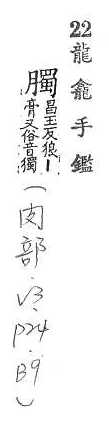 22 龍龕手鑑
臅昌玉反狼丨
膏又俗音獨
(肉部.V3.P24.B9)